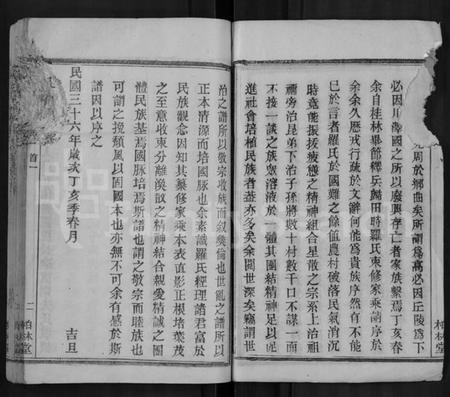 周於鄉曲矣所謂爲高必因丘陵爲下
必因川澤國之所以廢興存亡者家族繫焉丁亥春
余自桂林畢節釋兵歸田時羅氏東修家乘請序於
余余久歷戎行疏於文辭何能爲貴族序然有不能
已於言者羅氏於國難之餘值農村破落民氣消沉
時竟能振拔疲憊之精神組合星散之宗系上治祖
禰旁治昆弟下治子孫將數十村數千口不謀一面
不接一談之族衆溶液於一體其團結精神足以促
進社會培植民族者蓋亦多矣余閱世深矣竊謂世
治之譜所以敬宗收族而敘彝倫也世亂之譜所以
正本清源而培國脈也余素識羅氏經理諸君富於
民族觀念因知其纂修家乘本表直影正根培葉茂
之至意收束分離渙散之精神結合親愛精誠之團
體民族基焉國脈培焉斯譜也謂之敬宗而睦族也
可謂之挽頹風以固國本也亦無不可余有感於斯
譜因以序之
民國三十六年歲次丁亥季春月 吉旦
首一
二
柏林堂